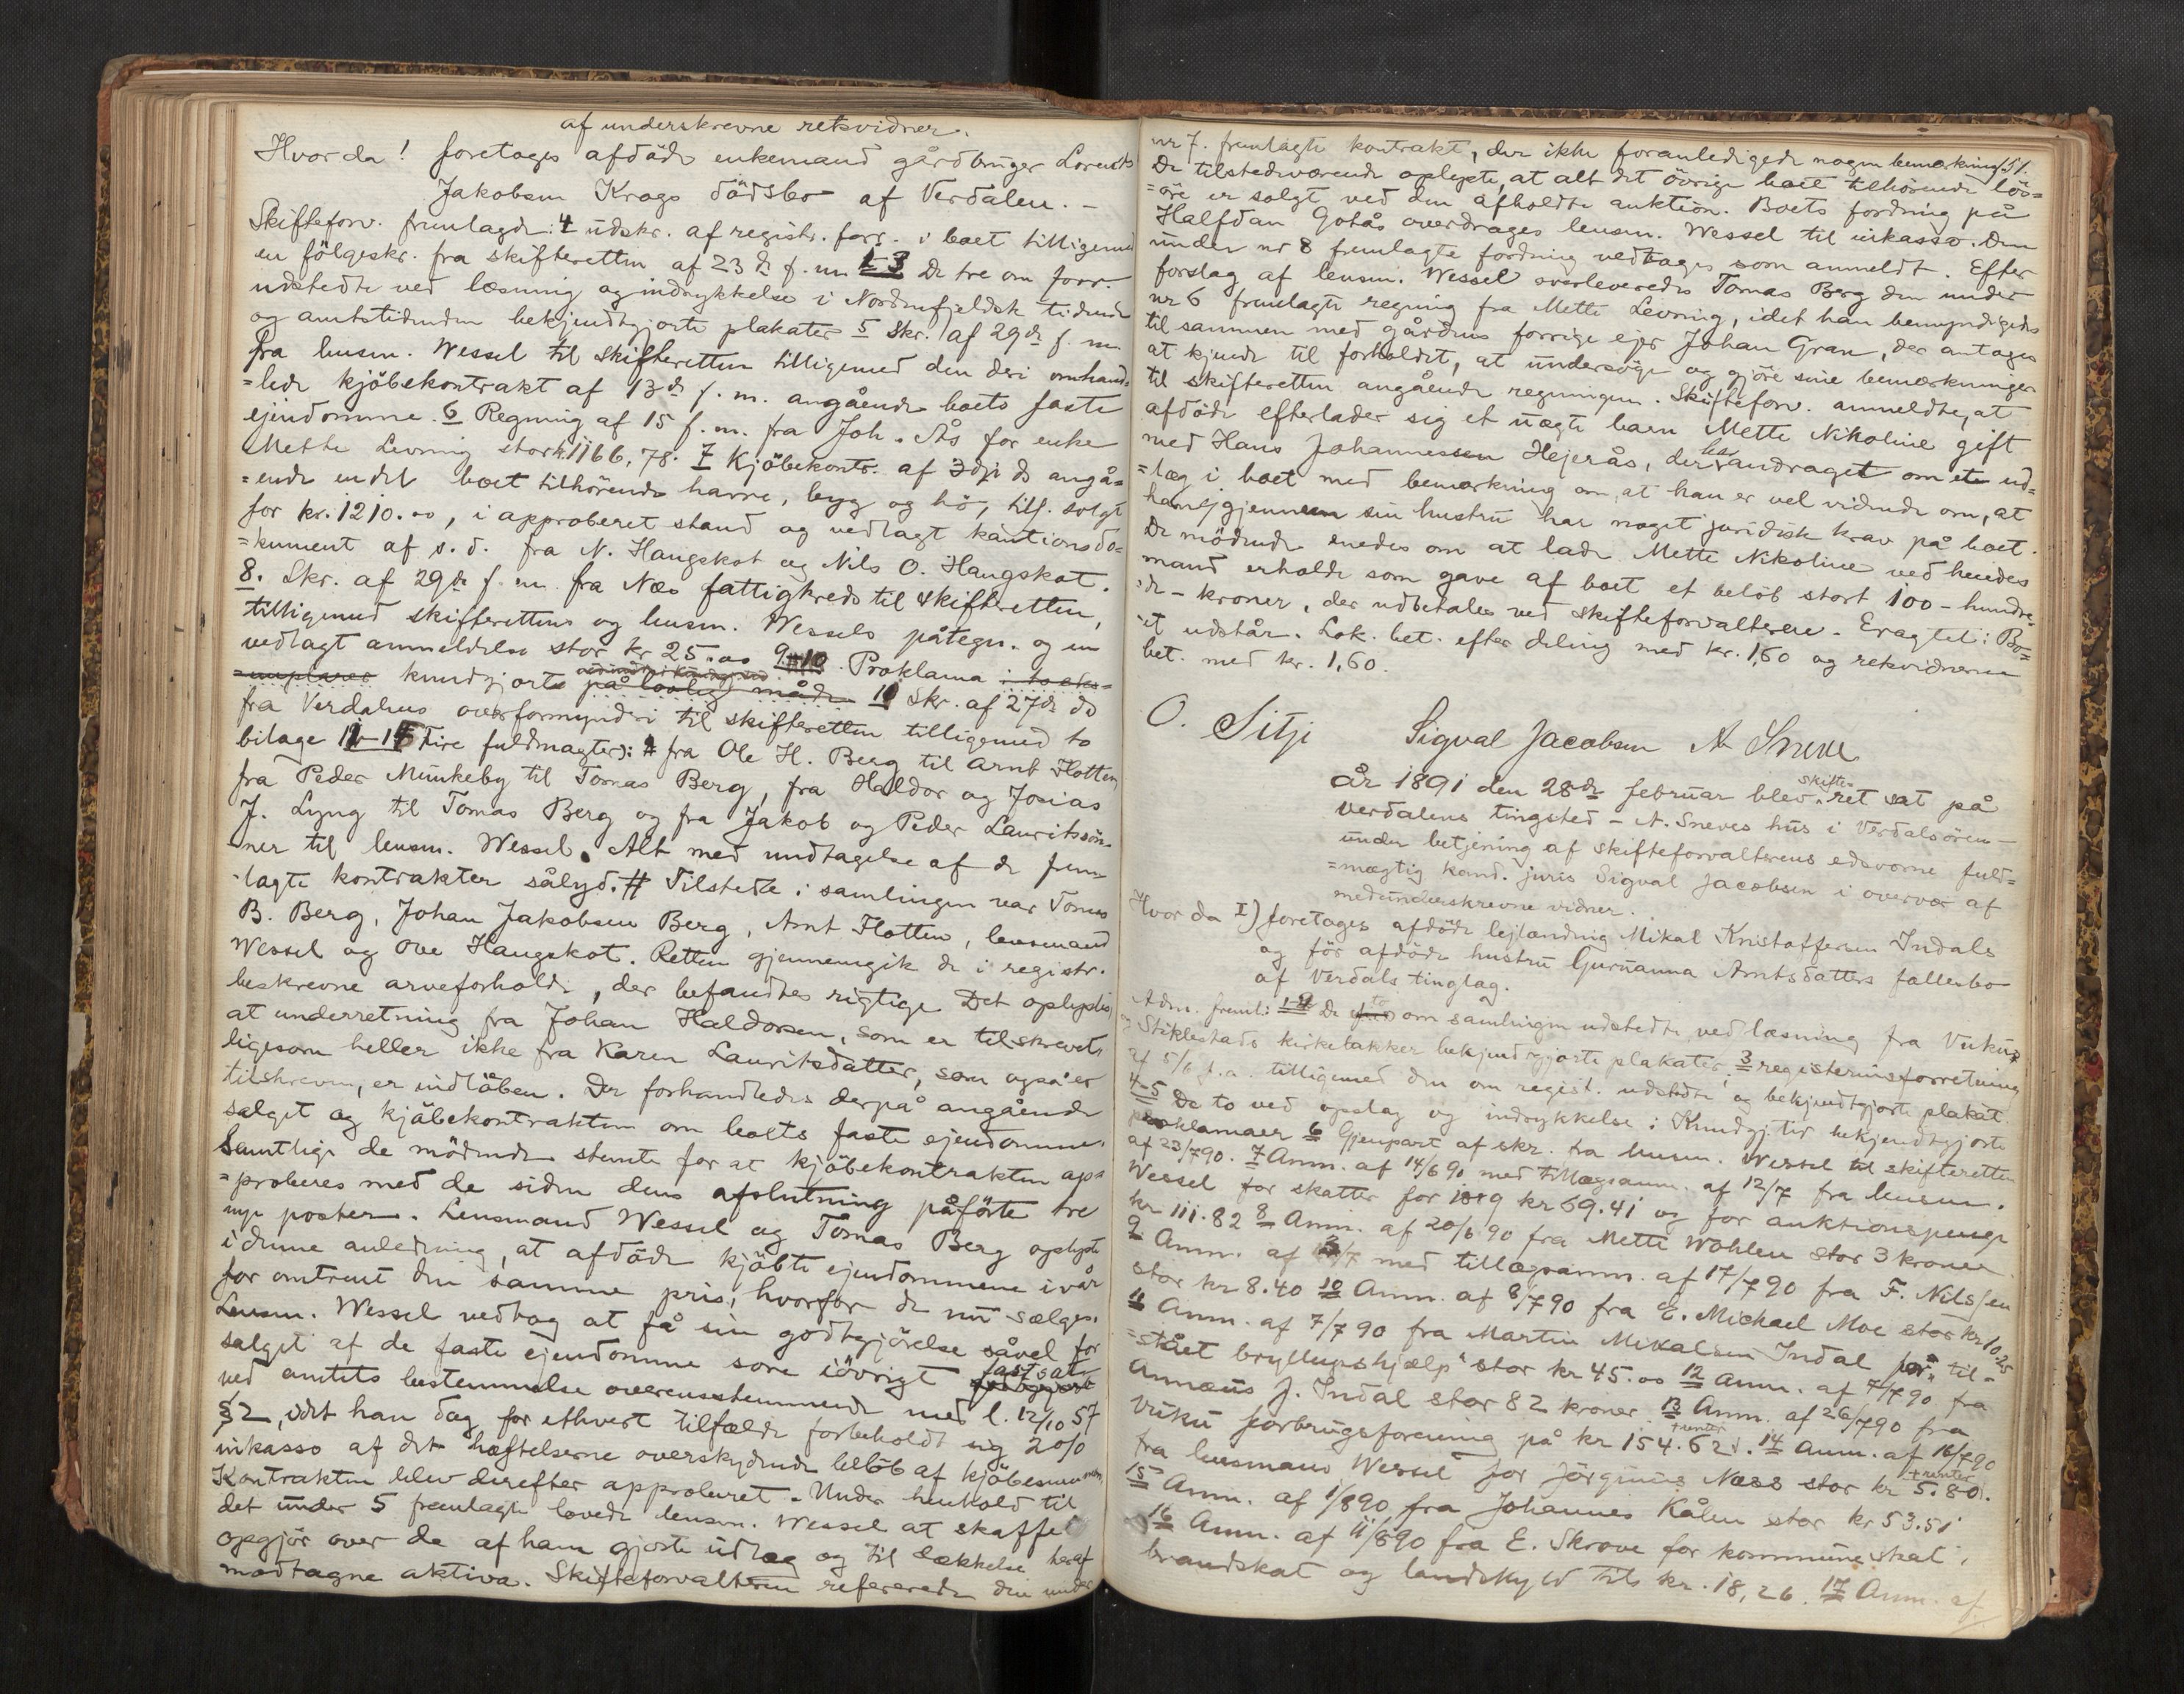 af underskrevne retsvidner.
Hvor da! foretages afdöde enkemand gårdbruger Lorents
Jakobsen Krags dödsbo af Verdalen. –
Skifteforv. fremlagde: 4 udskr. af registr. forr. i boet tilligemed
en fölgeskr. fra skifteretten af 23 de f. m. 1-3 De tre om forr.
udstedte ved læsning og indrykkelse i Nordenfjeldsk tidende
og amtstidenden bekjendtgjorte plakater 5 Skr. af 29 de f. m.
fra lensm. Wessel til skifteretten tilligemed den deri omhand=
=lede kjöbekontrakt af 13 de f. m. angående boets faste
ejendomme. 6 Regning af 15 f. m. fra Joh. Ås for enke
Mette Levring stor kr 1166,78. 7 Kjöbekontr. af 3 dje ds angå=
=ende endel boet tilhörende havre, byg og hö, tils. solgt
for kr. 1210.00, i approberet stand og vedlagt kautionsdo=
=kument af s. d. fra N. Haugskot og Nils O. Haugskot.
8. Skr. af 29 de f. m. fra Næs fattigkreds til skifteretten,
tilligemed skifterettens og lensm. Wessels påtegn. og en
vedlagt anmeldelse stor kr 25.00 9-10. Proklama i to eks=
=emplarer kundgjort på lovlig måde 11 Skr. af 27 de ds
fra Verdalens overformynderi til skifteretten tilligemed to
bilage 12-15 Fire fuldmagter: fra Ole H. Berg til Arnt Flotten,
fra Peder Minkeby til Tomas Berg, fra Haldor og Josias
J. Lyng til Tomas Berg og fra Jakob og Peder Lauritssön=
ner til lensm. Wessel. Alt med undtagelse af de frem=
-lagte kontrakter sålyd. # Tilstede i samlingen var Tomas
B. Berg, Johan Jakobsen Berg, Arnt Flotten, lensmand
Wessel og Ove Haugskot. Retten gjennemgik de i registr.
beskrevne arveforholde, der befandtes rigtige. Det oplystes,
at underretning fra Johan Haldorsen, som er tilskrevet,
ligesom heller ikke fra Karen Lauritsdatter, som også er
tilskreven, er indlöben. Der forhandledes derpå angående
salget og kjöbekontrakten om boets faste ejendomme.
Samtlige de mödende stemte for at kjöbekontrakten ap=
=proberes med de siden dens afslutning påförte tre
nye poster. Lensmand Wessel og Tomas Berg oplyste
i denne anledning, at afdöde kjöbte ejendommene i vår
for omtrent den samme pris, hvorfor de nu sælges.
Lensm. Wessel vedtog at få sin godtgjörelse såvel for
salget af de faste ejendomme som iövrigt fastsat
ved amtets bestemmelse overensstemmende med l. 12/10 57
§2, idet han dog for ethvert tilfælde forbeholdt sig 2 o/o
inkasso af det hæftelserne overskydende belöb af kjöbesummen.
Kontrakten blev derefter approberet. Under henhold til
det under 5 fremlagte lovede lensm. Wessel at skaffe
opgjör over de af ham gjorte udlæg og til dækkelse heraf
modtagne aktiva. Skifteforvalteren refererede den under
nr 7. fremlagte kontrakt, der ikke foranledigede nogen bemærkning. 51.
De tilstedeværende oplyste, at alt det övrige boet tilhörende lös=
=öre er solgt ved den afholdte auktion. Boets fordring på
Halfdan Gotås overdrages lensm. Wessel til inkasso. Den
under nr 8 fremlagte fordring vedtages som anmeldt. Efter
forslag af lensm. Wessel overleveredes Tomas Berg den under
nr 6 fremlagte regning fra Mette Levring, idet han bemyndigedes
til sammen med gårdens forrige ejer Johan Gran, der antages
at kjende til forholdet, at undersöge og gjöre sine bemærkninger
til skifteretten angående regningen. Skifteforv. anmeldte, at
afdöde efterlader sig et uægte barn Mette Nikoline gift
med Hans Johannessen Hejerås, der har andraget om et ud=
=læg i boet med bemærkning om, at han er vel vidende om, at
han gjennem sin hustru har noget juridisk krav på boet.
De mödende enedes om at lade Mette Nikoline ved hendes
mand erholde som gave af boet et belöb stort 100 – hundre=
=de – kroner, der udbetales ved skifteforvalteren. Eragtet: Bo=
=et udstår. Lok. bet. efter deling med kr. 1,60 og retsvidnerne
bet. med kr. 1,60.
O. Sitji Sigval Jacobsen A Sneve
År 1891 den 28de februar blev skifte-ret sat på
Verdalens tingsted – A. Sneves hus i Verdalsören –
under betjening af skifteforvalterens edsvorne fuld=
=mægtig kand. juris Sigval Jacobsen i overvær af
medunderskrevne vidner.
Hvor da I) foretages afdöde lejlænding Mikal Kristoffersen Indals
og för afdöde hustru Gurianna Arntsdatters fællesbo
af Verdals tinglag.
Adm. freml: 1-2 De to om samlingen udstedte ved læsning fra Vuku
og Stiklestads kirkebakker bekjendtgjorte plakater, 3 registreringsforretning
af 5/6 f. a. tilligemed den om regist. udstedte og bekjendtgjorte plakat.
4-5 De to ved opslag og indrykkelse i Kundgj. tid. bekjendtgjorte
proklamaer 6 Gjenpart af skr. fra lensm. Wessel til skifteretten
af 23/7 90. 7 Anm. af 14/6 90 med tillægsanm. af 12/7 fra lensm.
Wessel for skatter for 1889 kr 69.41 og for auktionspenge
kr 111.82 8 Anm. af 20/6 90 fra Mette Wohlen stor 3 kroner
9 Anm. af /7 med tillægsanm. af 17/7 90 fra F. Nilssen
stor kr 8.40 10 Anm. af 8/7 90 fra E. Michael Moe stor kr 10.25
11 Anm. af 7/7 90 fra Martin Mikalsen Indal for „til=
=stået bryllupshjælp“ stor kr 45.00 12 Anm. af 7/7 90 fra
Annæus J. Indal stor 82 kroner. 13 Anm. af 26/7 90 fra
Vuku forbrugsforening på kr 154.62 + renter. 14 Anm. af 16/7 90
fra lensmand Wessel for Jörginus Næss stor kr 5.80 + renter.
15 Anm. af 1/8 90 fra Johannes Kålen stor kr 53.51
16 Anm. af 11/8 90 fra E. Skrove for kommuneskat,
brandskat og landskyld tils kr. 18,26. 17 Anm. af